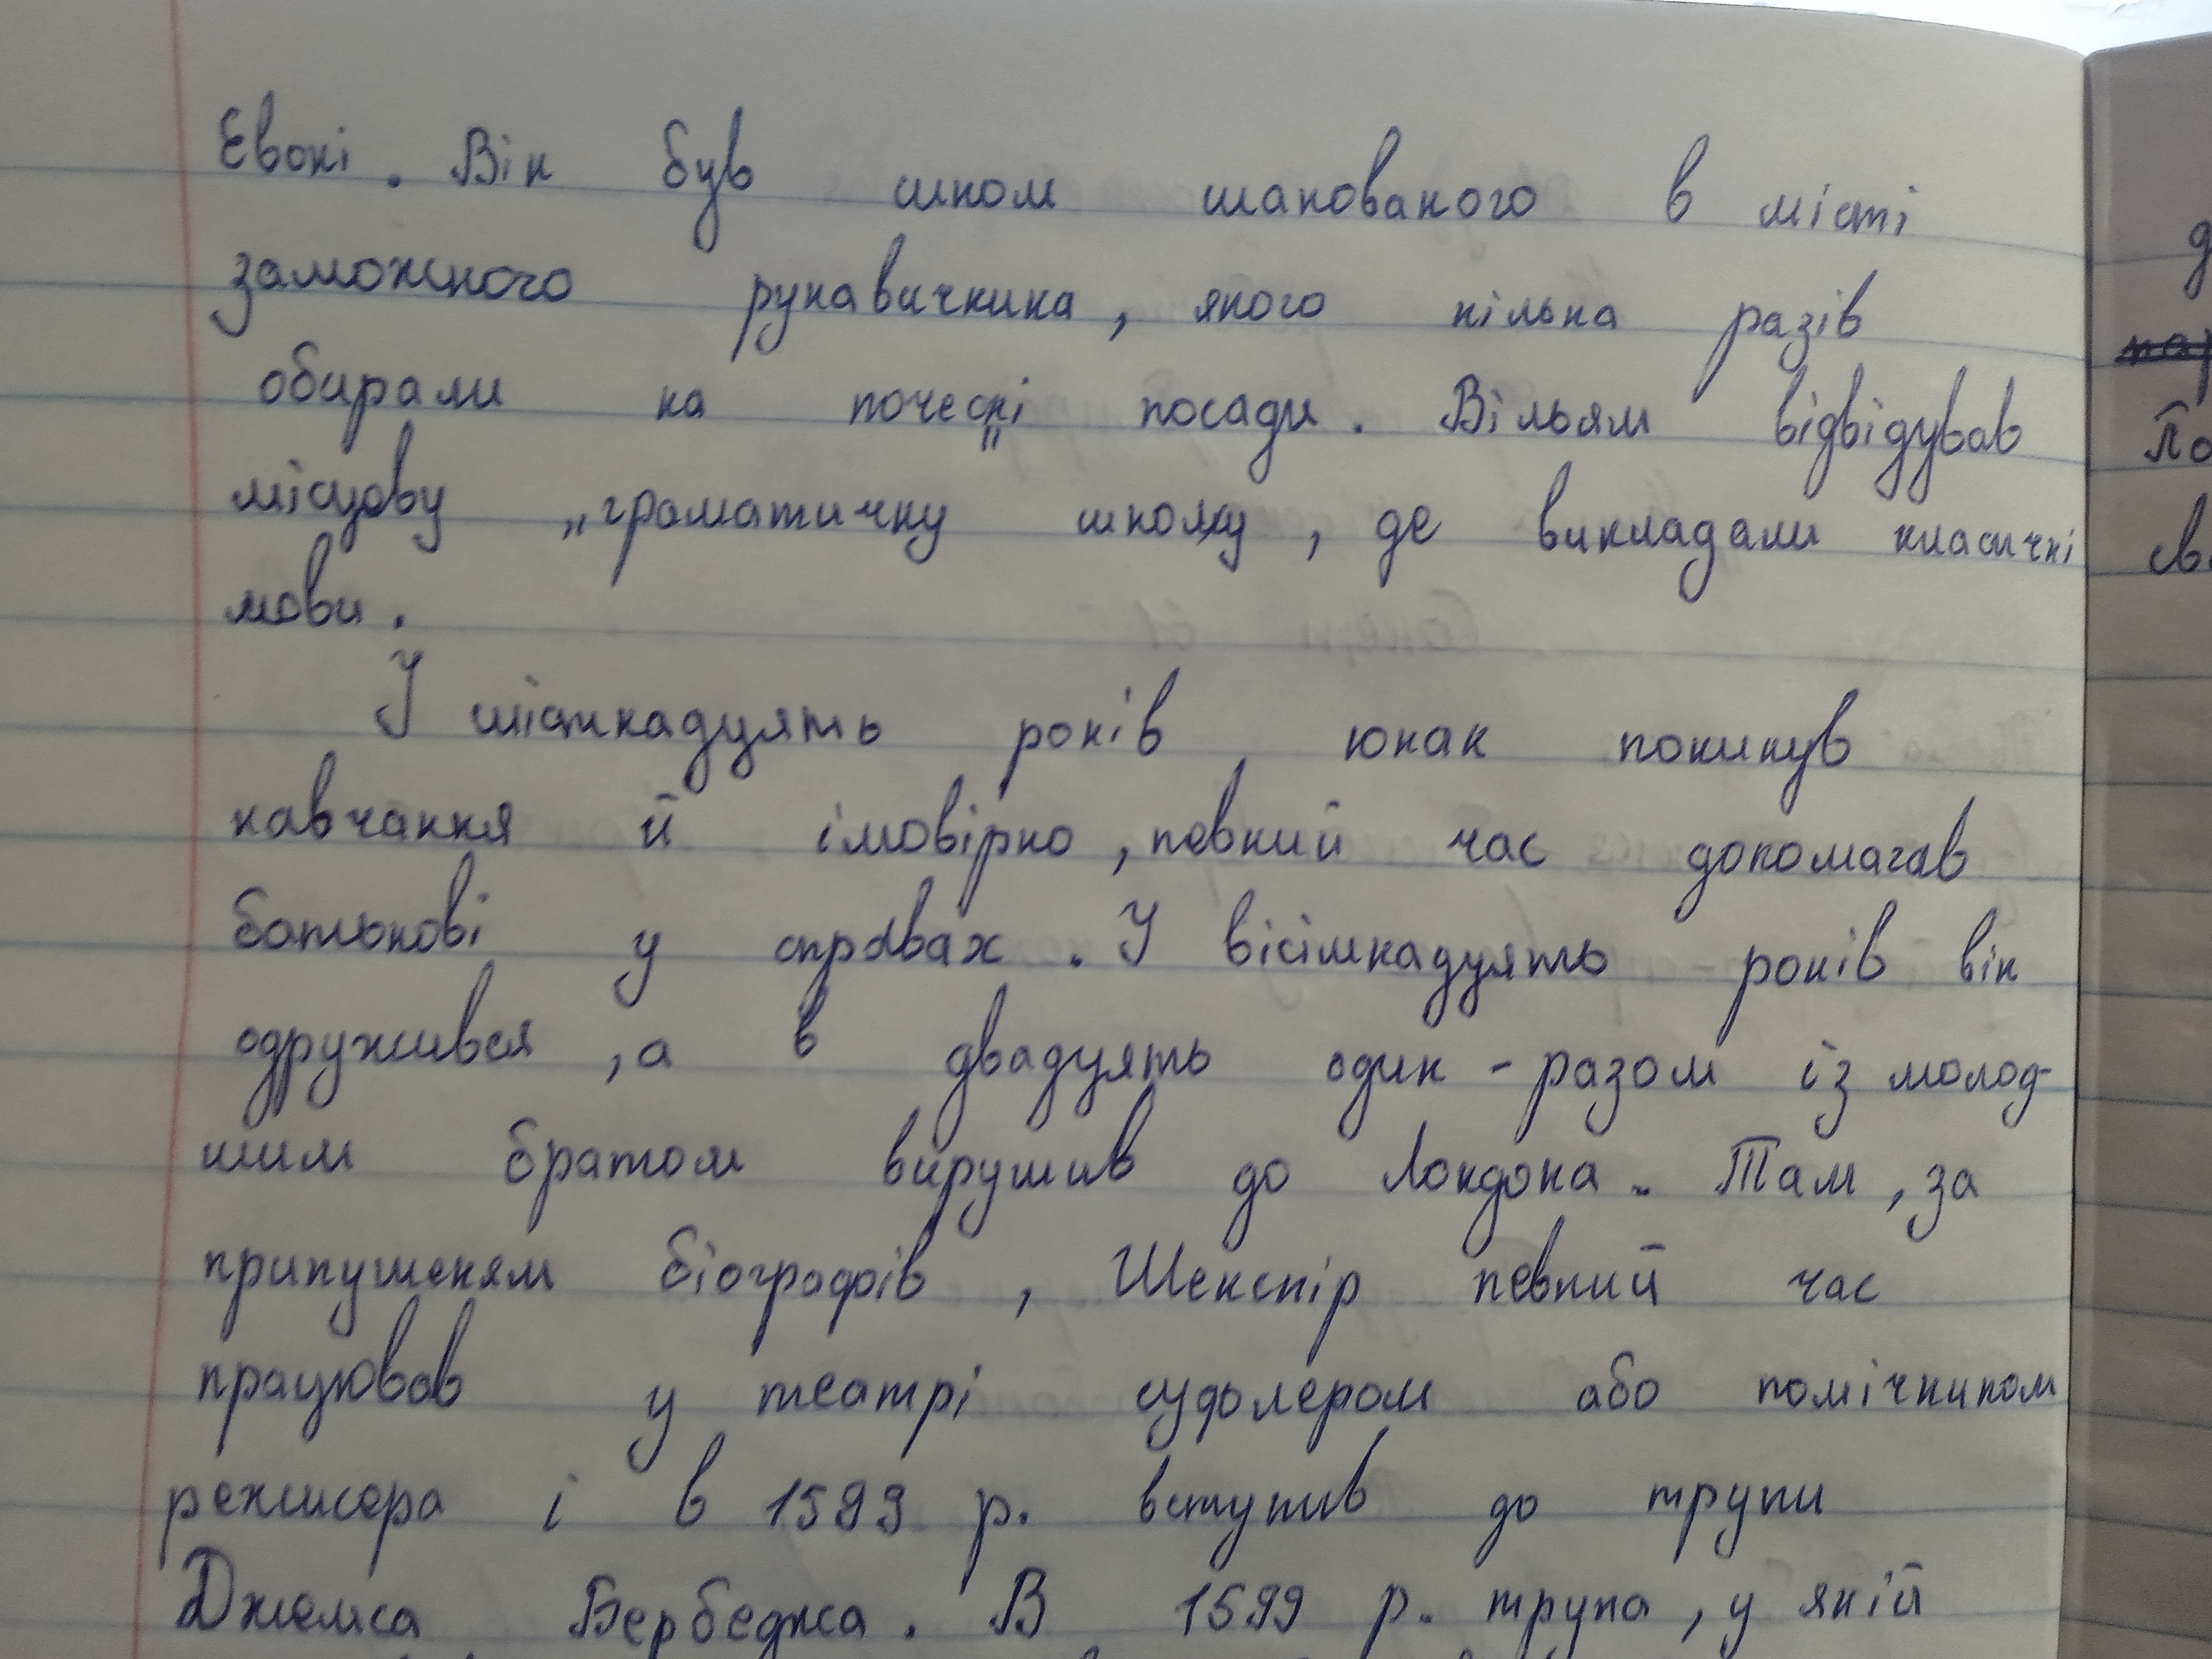 Евоні. Він був сином шанованого в місті
заможного рукавичника, якого кілька разів
обирали на почесні посади. Вільям відвідував
місцеву „граматичну школу, де викладали класичні
мови.
У шістнадцять років юнак покинув
навчання й імовірно, певний час допомагав
батькові у справах. У вісімнадцять років він
одружився, а в двадцять один - разом із молод-
шим братом вирушив до Лондона. Там, за
припущеням біографів, Шекспір певний час
працював у театрі суфлером або помічником
режисера і в 1593 р. вступив до трупи
Джемса Бербеджа. В 1599 р. трупа, у якій
По